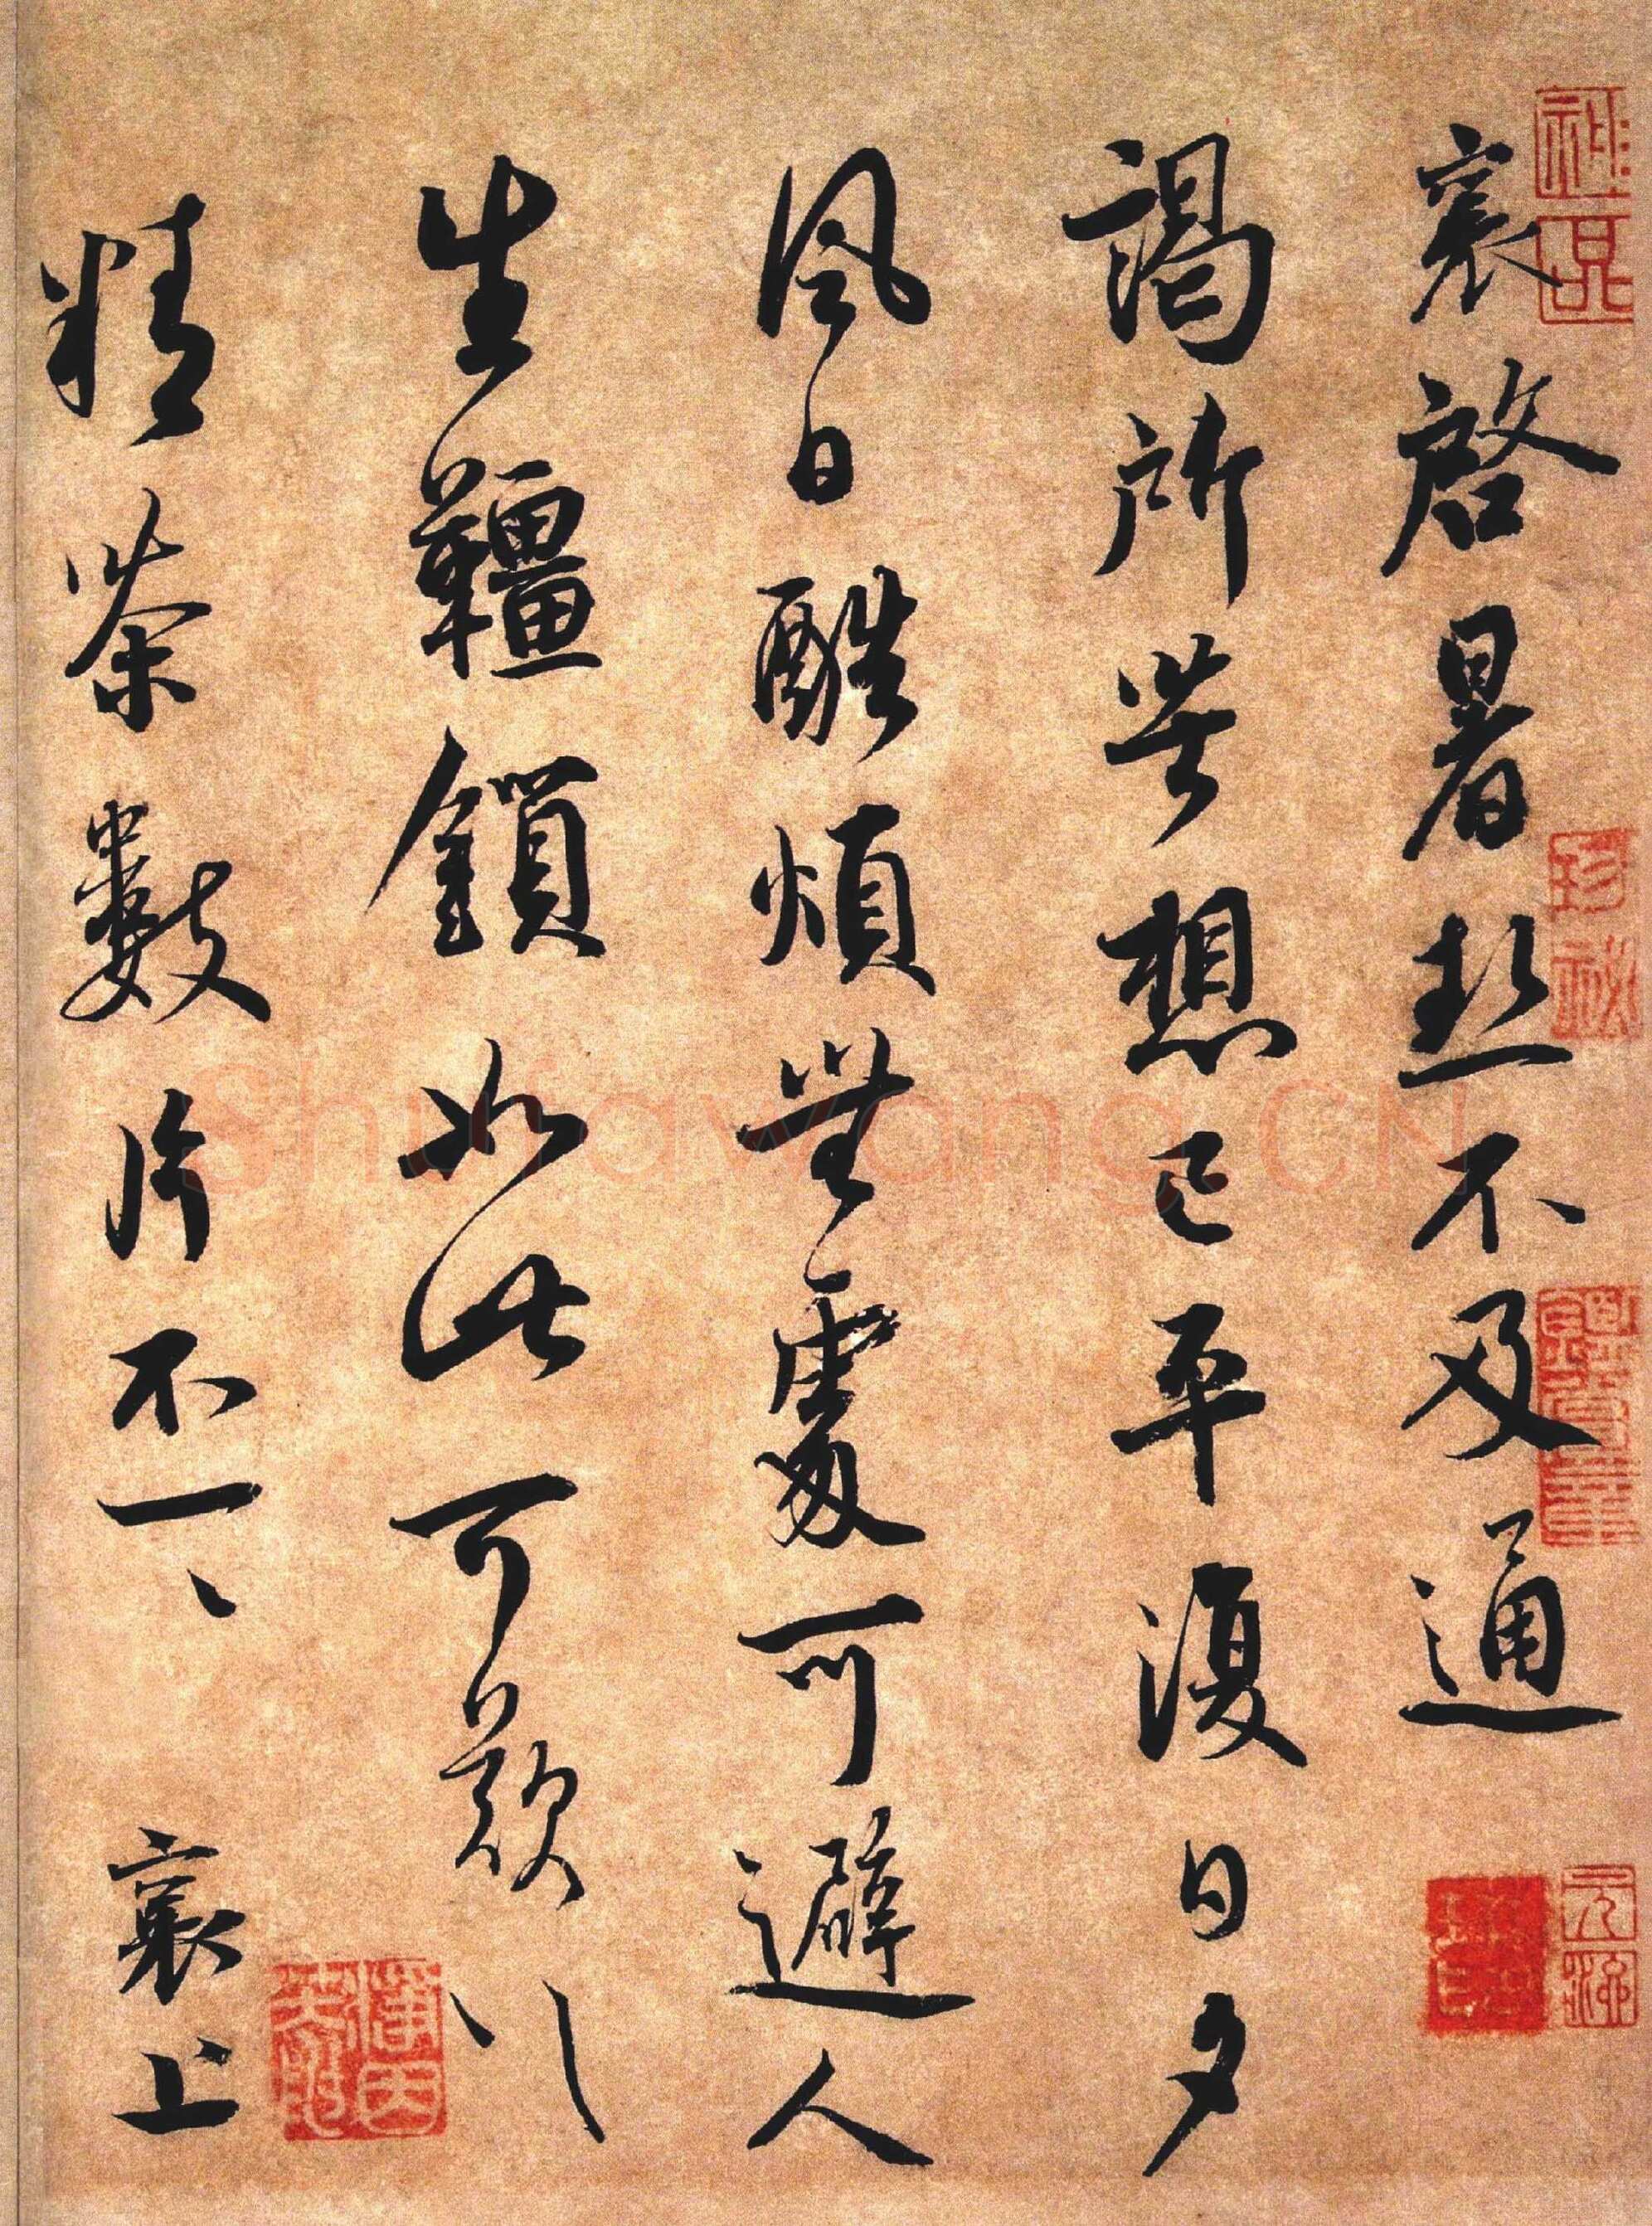 襄啓暑熱不及通
謁所苦想已平復日夕
風日酷煩無處可避人
生韁鎖如此可歎可歎
精茶數片不一一襄上
神品
珍祕
Shufawang.CN